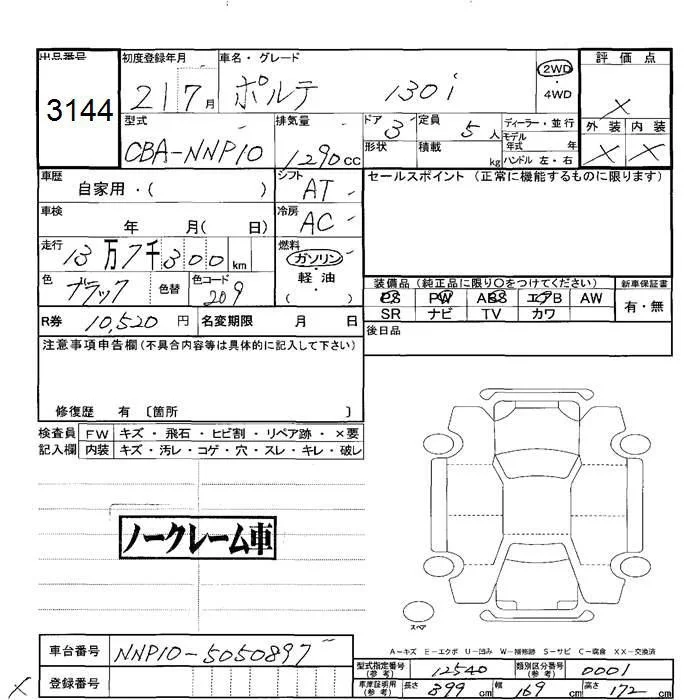 出品番号 初度登録年月 車名・グレード 2WD ・ 4WD 評価点
3144 21 7月 ポルテ 130i X
型式 排気量 ドア 3 定員 5人 ディーラー・並行 外装 内装
CBA-NNP10 1290cc 形状 積載 kg モデル年式 年 ハンドル 左・右 X X
車歴 自家用・( ) シフト AT セールスポイント (正常に機能するものに限ります)
車検 年 月( 日) 冷房 AC
走行 13万7千300km 燃料 ガソリン・軽油・( )
色 ブラック 色替 色コード 209
装備品 (純正品に限り○をつけてください) 新車保証書
PS PW ABS エアB AW 有・無
SR ナビ TV カワ
R券 10,520円 名変期限 月 日 後日品
注意事項申告欄 (不具合内容等は具体的に記入して下さい)
修復歴 有 〔箇所 〕
検査員 FW キズ・飛石・ヒビ割・リペア跡・×要
記入欄 内装 キズ・汚レ・コゲ・穴・スレ・キレ・破レ
ノークレーム車
スペア
A−キズ E−エクボ U−凹み W−補修跡 S−サビ C−腐食 XX−交換済
車台番号 NNP10-5050897
型式指定番号(参考) 12540 類別区分番号(参考) 0001
X 登録番号
車庫証明用(参考) 長さ 399cm 幅 169cm 高さ 172cm